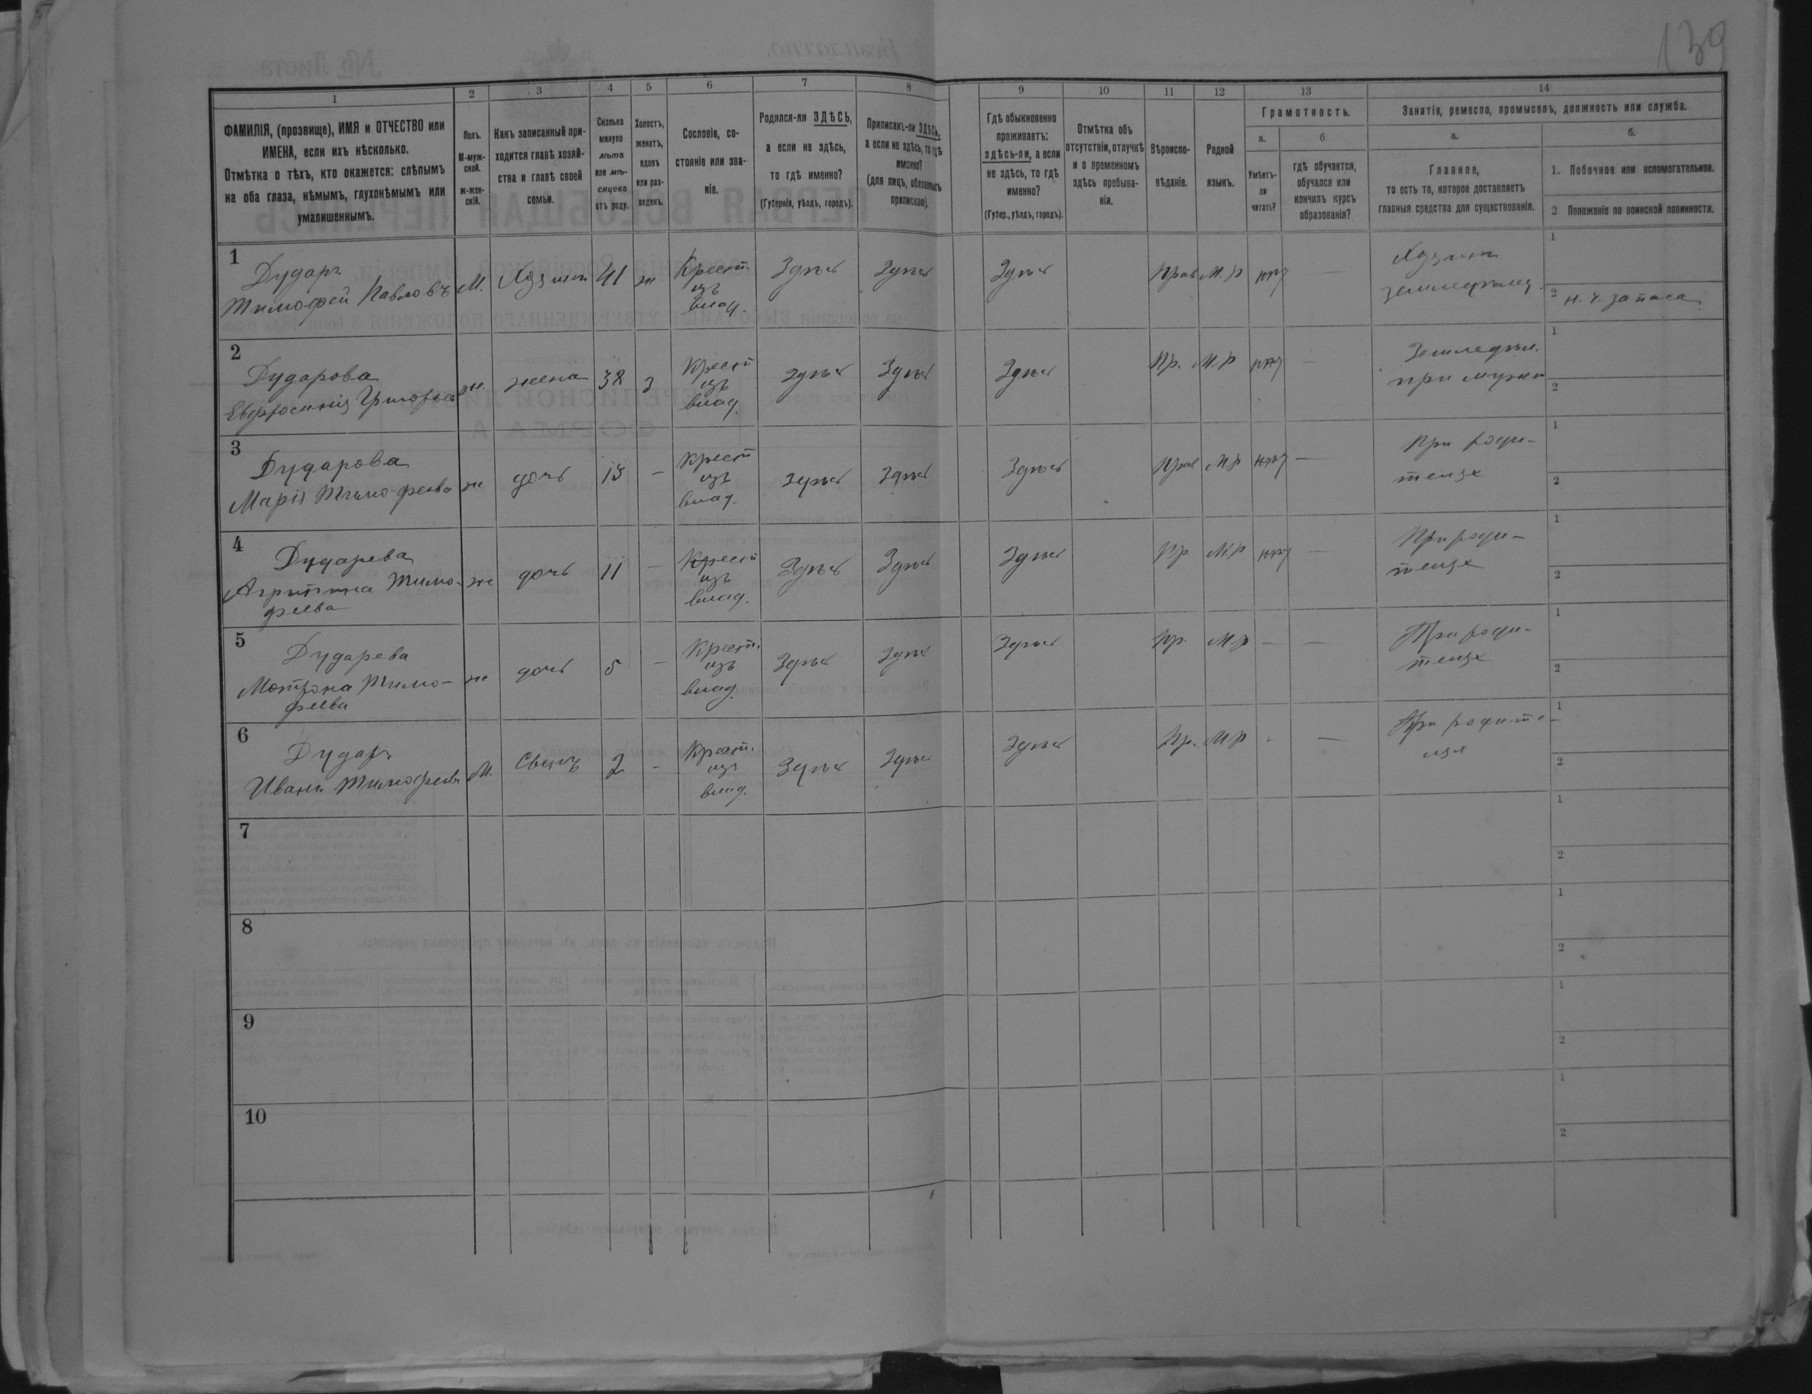 139
1 2 3 4 5 6 7 8 9 10 11 12 13 14
ФАМИЛІЯ, (прозвище), ИМЯ и ОТЧЕСТВО или
ИМЕНА, если ихъ нѣсколько.
Отмѣтка о тѣхъ, кто окажется: слѣпымъ
на оба глаза, нѣмымъ, глухонѣмымъ или
умалишеннымъ.
Полъ.
М-муж-
ской.
ж-жен-
скій.
Какъ записанный при-
ходится главѣ хозяй-
ства и главѣ своей
семьи.
Сколько
минуло
лѣтъ
или мѣ-
сяцевъ
отъ роду.
Холостъ,
женатъ,
вдовъ
или раз-
веденъ.
Сословіе, со-
стояніе или зва-
ніе.
Родился-ли ЗДѢСЬ,
а если не здѣсь,
то гдѣ именно?
(Губернія, уѣздъ, городъ).
Приписанъ-ли ЗДѢСЬ,
а если не здѣсь, то гдѣ
именно?
(для лицъ, обязанныхъ
припискою).
Гдѣ обыкновенно
проживаетъ:
здѣсь-ли, а если
не здѣсь, то гдѣ
именно?
(Губер., уѣздъ, городъ).
Отмѣтка объ
отсутствіи, отлучкѣ
и о временномъ
здѣсь пребыва-
ніи.
Вѣроиспо-
вѣданіе.
Родной
языкъ.
Грамотность.
а.
Умѣетъ-
ли
читать?
б
гдѣ обучается,
обучался или
кончилъ курсъ
образованія?
Занятіе, ремесло, промыселъ, должность или служба.
а.
Главное,
то есть то, которое доставляетъ
главныя средства для существованія.
б.
1. Побочное или вспомогательное.
2 Положеніе по воинской повинности.
1
Дударъ
Тимофей Павловъ
М. Хозяин 41 ж
Крест.
изъ
влад.
Здѣсь Здѣсь Здѣсь Прав М.Р нѣт —
Хозяин
земледѣлец
1
2 н. ч. запаса
2
Дударова
Евфросинія Григорьева
ж жена 38 з
Крест
изъ
влад.
Здѣсь Здѣсь Здѣсь Пр. М.Р нѣт —
Земледѣл.
при мужѣ
1
2
3
Дударова
Марія Тимофеева
ж дочь 13 —
Крест
изъ
влад.
Здѣсь Здѣсь Здѣсь Прав М.Р нѣт —
При роди-
телях
1
2
4
Дударева
Агрипина Тимо-
феева
ж дочь 11 —
Крест
изъ
влад.
Здѣсь Здѣсь Здѣсь Пр М.Р нѣт —
При роди-
телях
1
2
5
Дударева
Мотрона Тимо-
феева
ж дочь 5 —
Крест.
изъ
влад.
Здѣсь Здѣсь Здѣсь Пр. М.Р — —
При роди-
телях
1
2
6
Дударъ
Иванъ Тимофеевъ
М. Сынъ 2 -
Крест.
изъ
влад.
Здѣсь Здѣсь Здѣсь Пр. М.Р - —
При родите-
лях
1
2
7
1
2
8
1
2
9
1
2
10
1
2